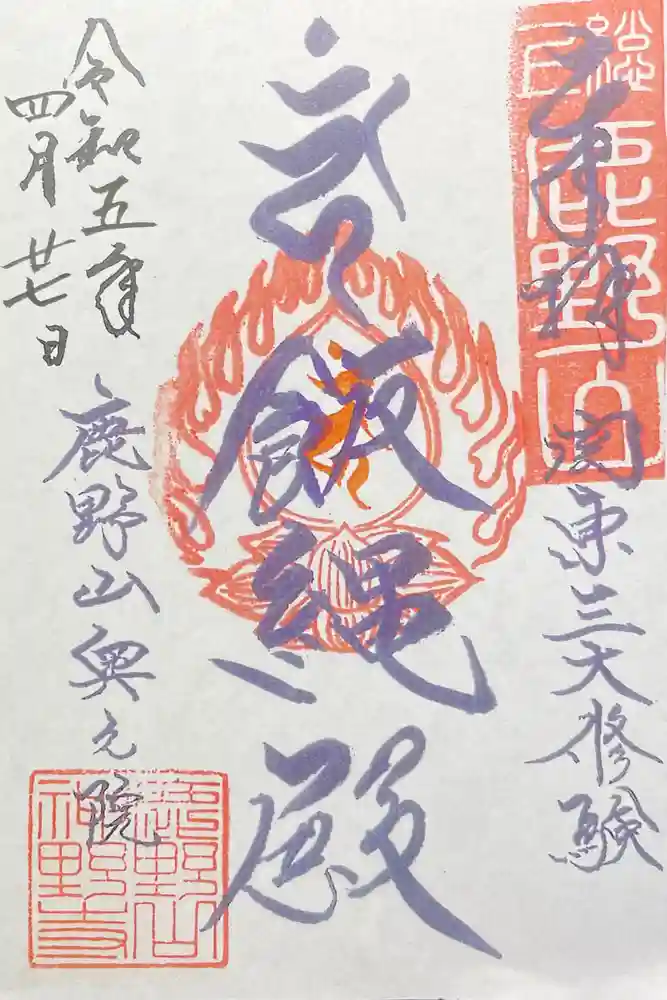 奉拝
関東三大修験
鹿野山
飯縄殿
令和五年
四月廿七日
鹿野山奥之院
鹿野山
神野寺